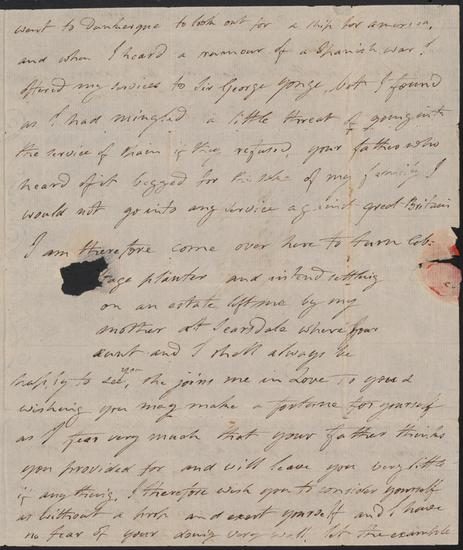 went to Dunkerque to look out for a ship for america,
and when I heard a rumour of a Spanish war I
offered my services to Sir George Yonge, but I found
as I had mingled a little threat of going into
the service of Spain if they refused, your father who
heard of it begged for the sake of my family I
would not go into any service against great Britain
I am therefore come over here to turn Cab:
:age planter and intend settling
on an estate left me by my
mother at Scarsdale where your
aunt and I shall always be
happy to see you, she joins me in Love to you &
wishing you may make a fortune for yourself
as I fear very much that your father thinks
you provided for and will leave you very little
if any thing, I therefore wish you to consider yourself
as without a prop and exert yourself and I have
no fear of your doing very well. let the example